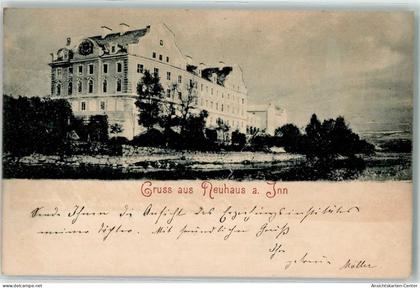 Gruss aus Neuhaus a. Inn
Sende Ihnen die Ansicht des Erziehungsinstitutes
meiner Töchter. Mit freundlichem Gruß
Ihr
Müller
© Ansichtskarten-Center